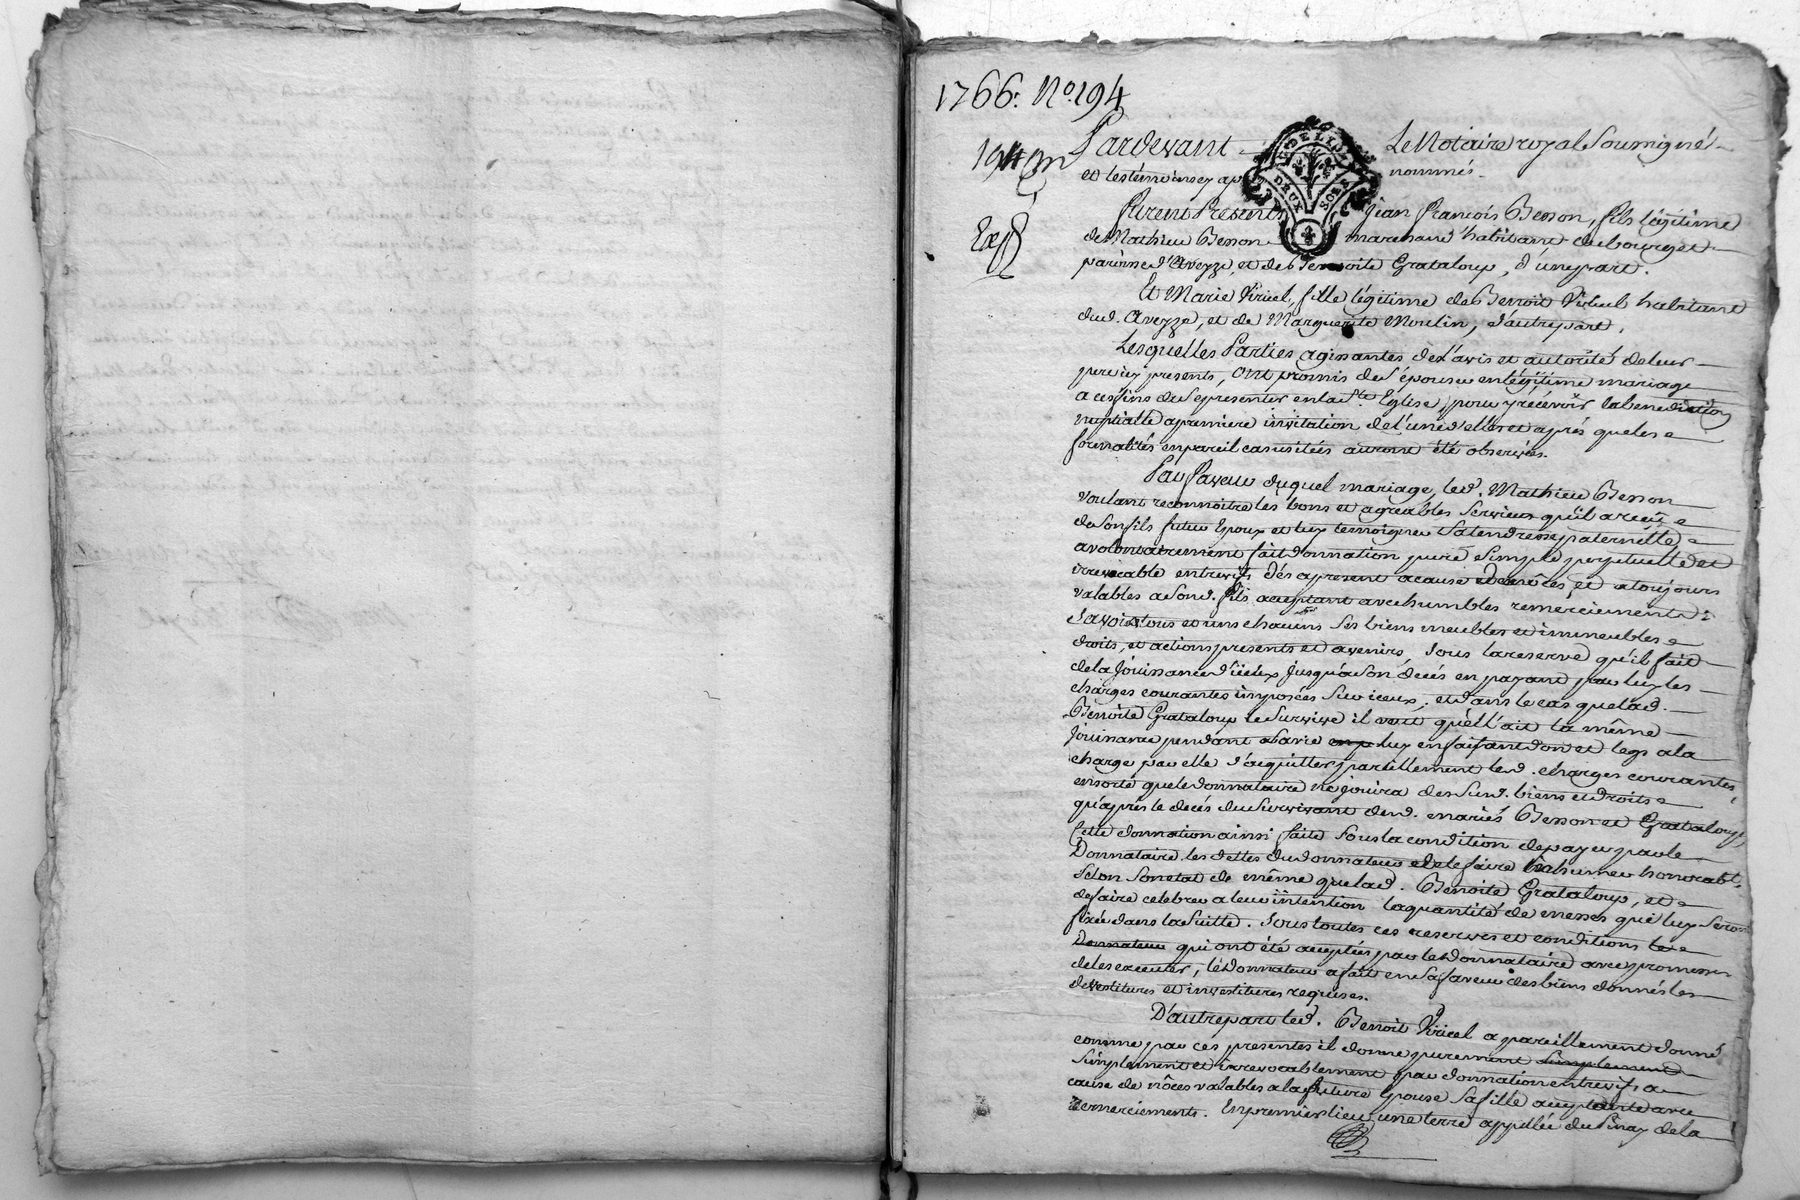 1766. No. 194
194
Exp
G. DE LION
DEUX SOLS
Pardevant Le Notaire royal Soussigné
et les témoins cy ap nommés.
furent Presents Jean François Besson, fils légitime
de Mathieu Besson marchand habitant du bourg et
paroisse d'Aveyze, et de Benoite Grataloup, d'une part.
Et Marie Viricel, fille légitime de Benoit Viricel habitant
dud. Aveyze, et de Marguerite Moulin, d'autre part.
Lesquelles Parties agissantes de l'avis et autorité de leur
pere icy presents, Ont promis de s'épouser en légitime mariage
a ces fins de se presenter en la Ste. Eglise, pour y récevoir la benediction
nuptialle a premiere invitation de l'une d'elles et après que les
formalités en pareil cas usitées auront été observées.
En faveur duquel mariage, led. Mathieu Besson
voulant reconnoitre les bons et agréables services qu'il a reçu
de son fils futur Epoux et luy temoigner sa tendresse paternelle
a volontairement fait donnation pure simple perpetuelle et
irrevocable entre vifs dés apresent a cause de nôces et a toujours
valables a sond. fils acceptant avec humbles remerciements
Savoir tous et uns chacuns ses biens meubles et immeubles
droits, et actions presents et avenirs, sous la reserve qu'il fait
de la Jouissance d'iceux jusqu'a son decés en payant par luy les
charges courantes imposées sur iceux, et dans le cas que lad.
Benoite Grataloup le survive il veut qu'elle ait la même
Jouissance pendant sa vie luy en faisant don et legs a la
charge par elle d'acquitter pareillement led. charges courantes,
ensorte que le donnataire ne jouira desSusd. biens et droits
qu'après le decés du survivant desd. mariés Besson et Grataloup,
Cette donnation ainsi faite sous la condition de payer par le
Donnataire les dettes du donnateur et de le faire inhumer honorabt.
selon son etat de même que lad. Benoite Grataloup, et
de faire celebrer a leur intention la quantité de messes qui luy seront
fixée dans la suitte. Sous toutes ces reserves et conditions le
Donnateur qui ont été acceptées par le Donnataire avec promesses
de les executer, le Donnateur a fait en sa faveur des biens donnés les
devestitures et investitures requises.
D'autre part led. Benoit Viricel a pareillement donné
comme par ces presentes il donne purement simplement
Simplement et irrevocablement par donnation entre vifs a
cause de nôces valables a la future Epouse sa fille acceptante avec
remerciements. En premier lieu une terre appellée du Pinay de la